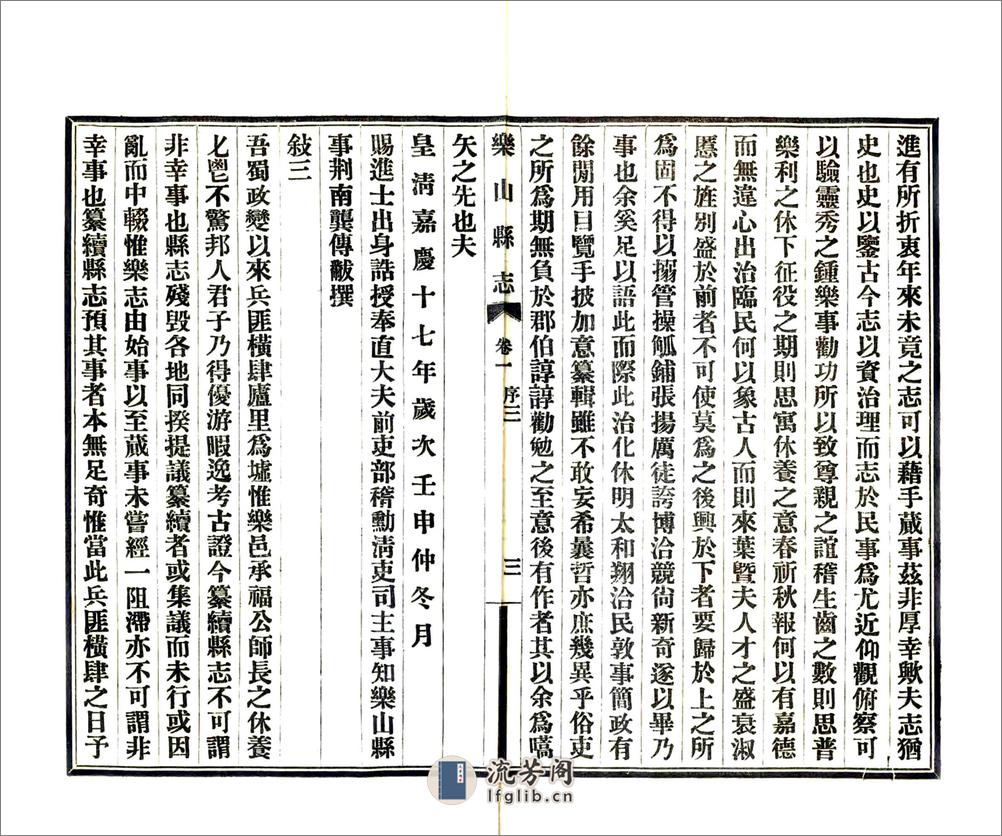 進有所折衷年來未竟之志可以藉手蕆事茲非厚幸歟夫志猶
史也史以鑒古今志以資治理而志於民事爲尤近仰觀俯察可
以驗靈秀之鍾樂事勸功所以致尊親之誼稽生齒之數則思普
樂利之休下征役之期則思寓休養之意春祈秋報何以有嘉德
而無違心出治臨民何以象古人而則來葉暨夫人才之盛衰淑
慝之旌別盛於前者不可使莫爲之後興於下者要歸於上之所
爲固不得以搦管操觚鋪張揚厲徒誇博洽競尙新奇遂以畢乃
事也余奚足以語此而際此治化休明太和翔洽民敦事簡政有
餘閒用目覽手披加意纂輯雖不敢妄希曩哲亦庶幾異乎俗吏
之所爲期無負於郡伯諄諄勸勉之至意後有作者其以余爲嚆
樂山縣志 卷一 序三 三
矢之先也夫
皇淸嘉慶十七年歲次壬申仲冬月
賜進士出身誥授奉直大夫前吏部稽勳淸吏司主事知樂山縣
事荆南龔傳黻撰
敍三
吾蜀政變以來兵匪橫肆廬里爲墟惟樂邑承福公師長之休養
匕鬯不驚邦人君子乃得優游暇逸考古證今纂續縣志不可謂
非幸事也縣志殘毀各地同揆提議纂續者或集議而未行或因
亂而中輟惟樂志由始事以至蕆事未嘗經一阻滯亦不可謂非
幸事也纂續縣志預其事者本無足奇惟當此兵匪橫肆之日予
流芳阁
lfglib.cn